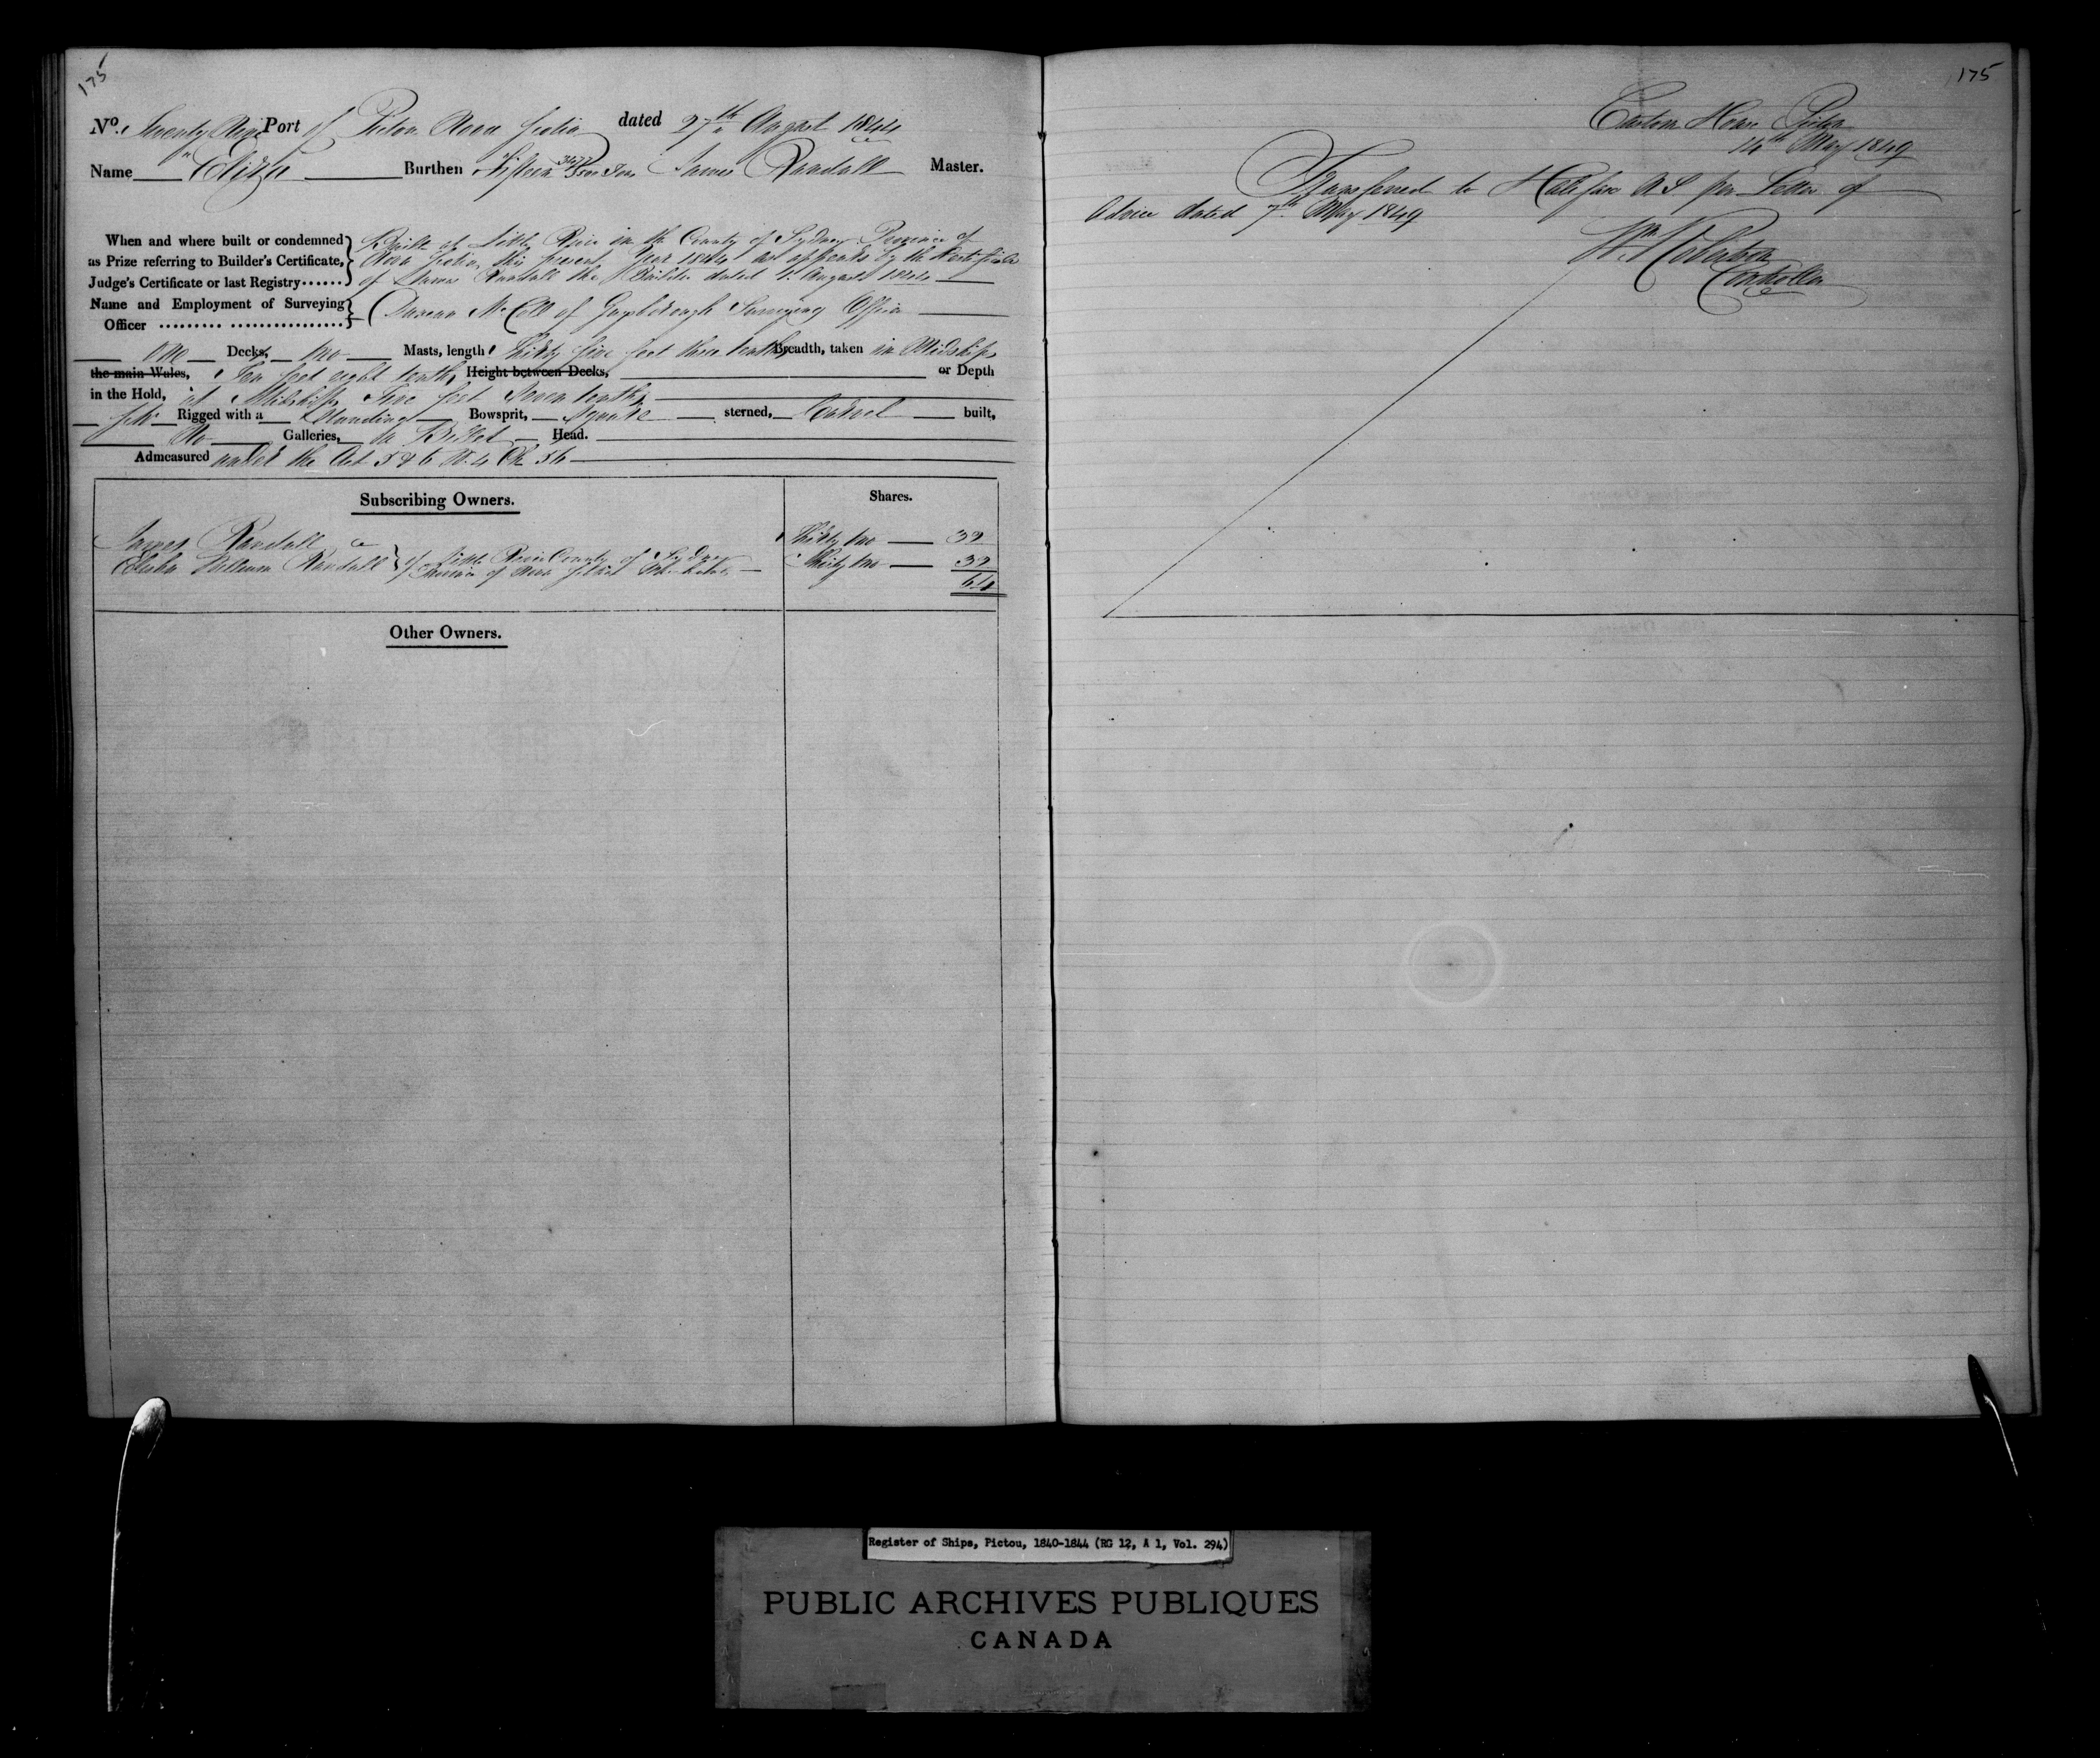 175
No. Twenty Nine Port of Pictou Nova Scotia dated 27th August 1844
Name Eliza Burthen Fifteen Tons James Randall Master.
When and where built or condemned as Prize referring to Builder's Certificate, Judge's Certificate or last Registry......
Built at Little River in the County of Sydney Province of
Nova Scotia this present Year 1844 as appears by the Certificate
of James Randall the Builder dated 1st August 1844
Name and Employment of Surveying Officer
Duncan McColl of Guysborough Surveying Officer
One Decks, two Masts, length Thirty five feet three tenths Breadth, taken in Midships
the main Wales, Ten feet eight tenths Height between Decks, or Depth
in the Hold, at Midships Five feet Seven tenths
Rigged with a Standing Bowsprit, Square sterned, Carvel built,
No Galleries, a Billet Head.
Admeasured under the Act 5 & 6 W. 4 Ch 56
Subscribing Owners. Shares.
James Randall Thirty two 32
Randall of Little River County of Sydney Province of Nova Scotia Thirty two 32
64
Other Owners.
175
Custom House Pictou
14th May 1849
Transferred to Halifax N.S. per Letter of
Advice dated 7th May 1849
Wm Robertson
Controller
Register of Ships, Pictou, 1840-1844 (RG 12, A 1, Vol. 294)
PUBLIC ARCHIVES PUBLIQUES
CANADA